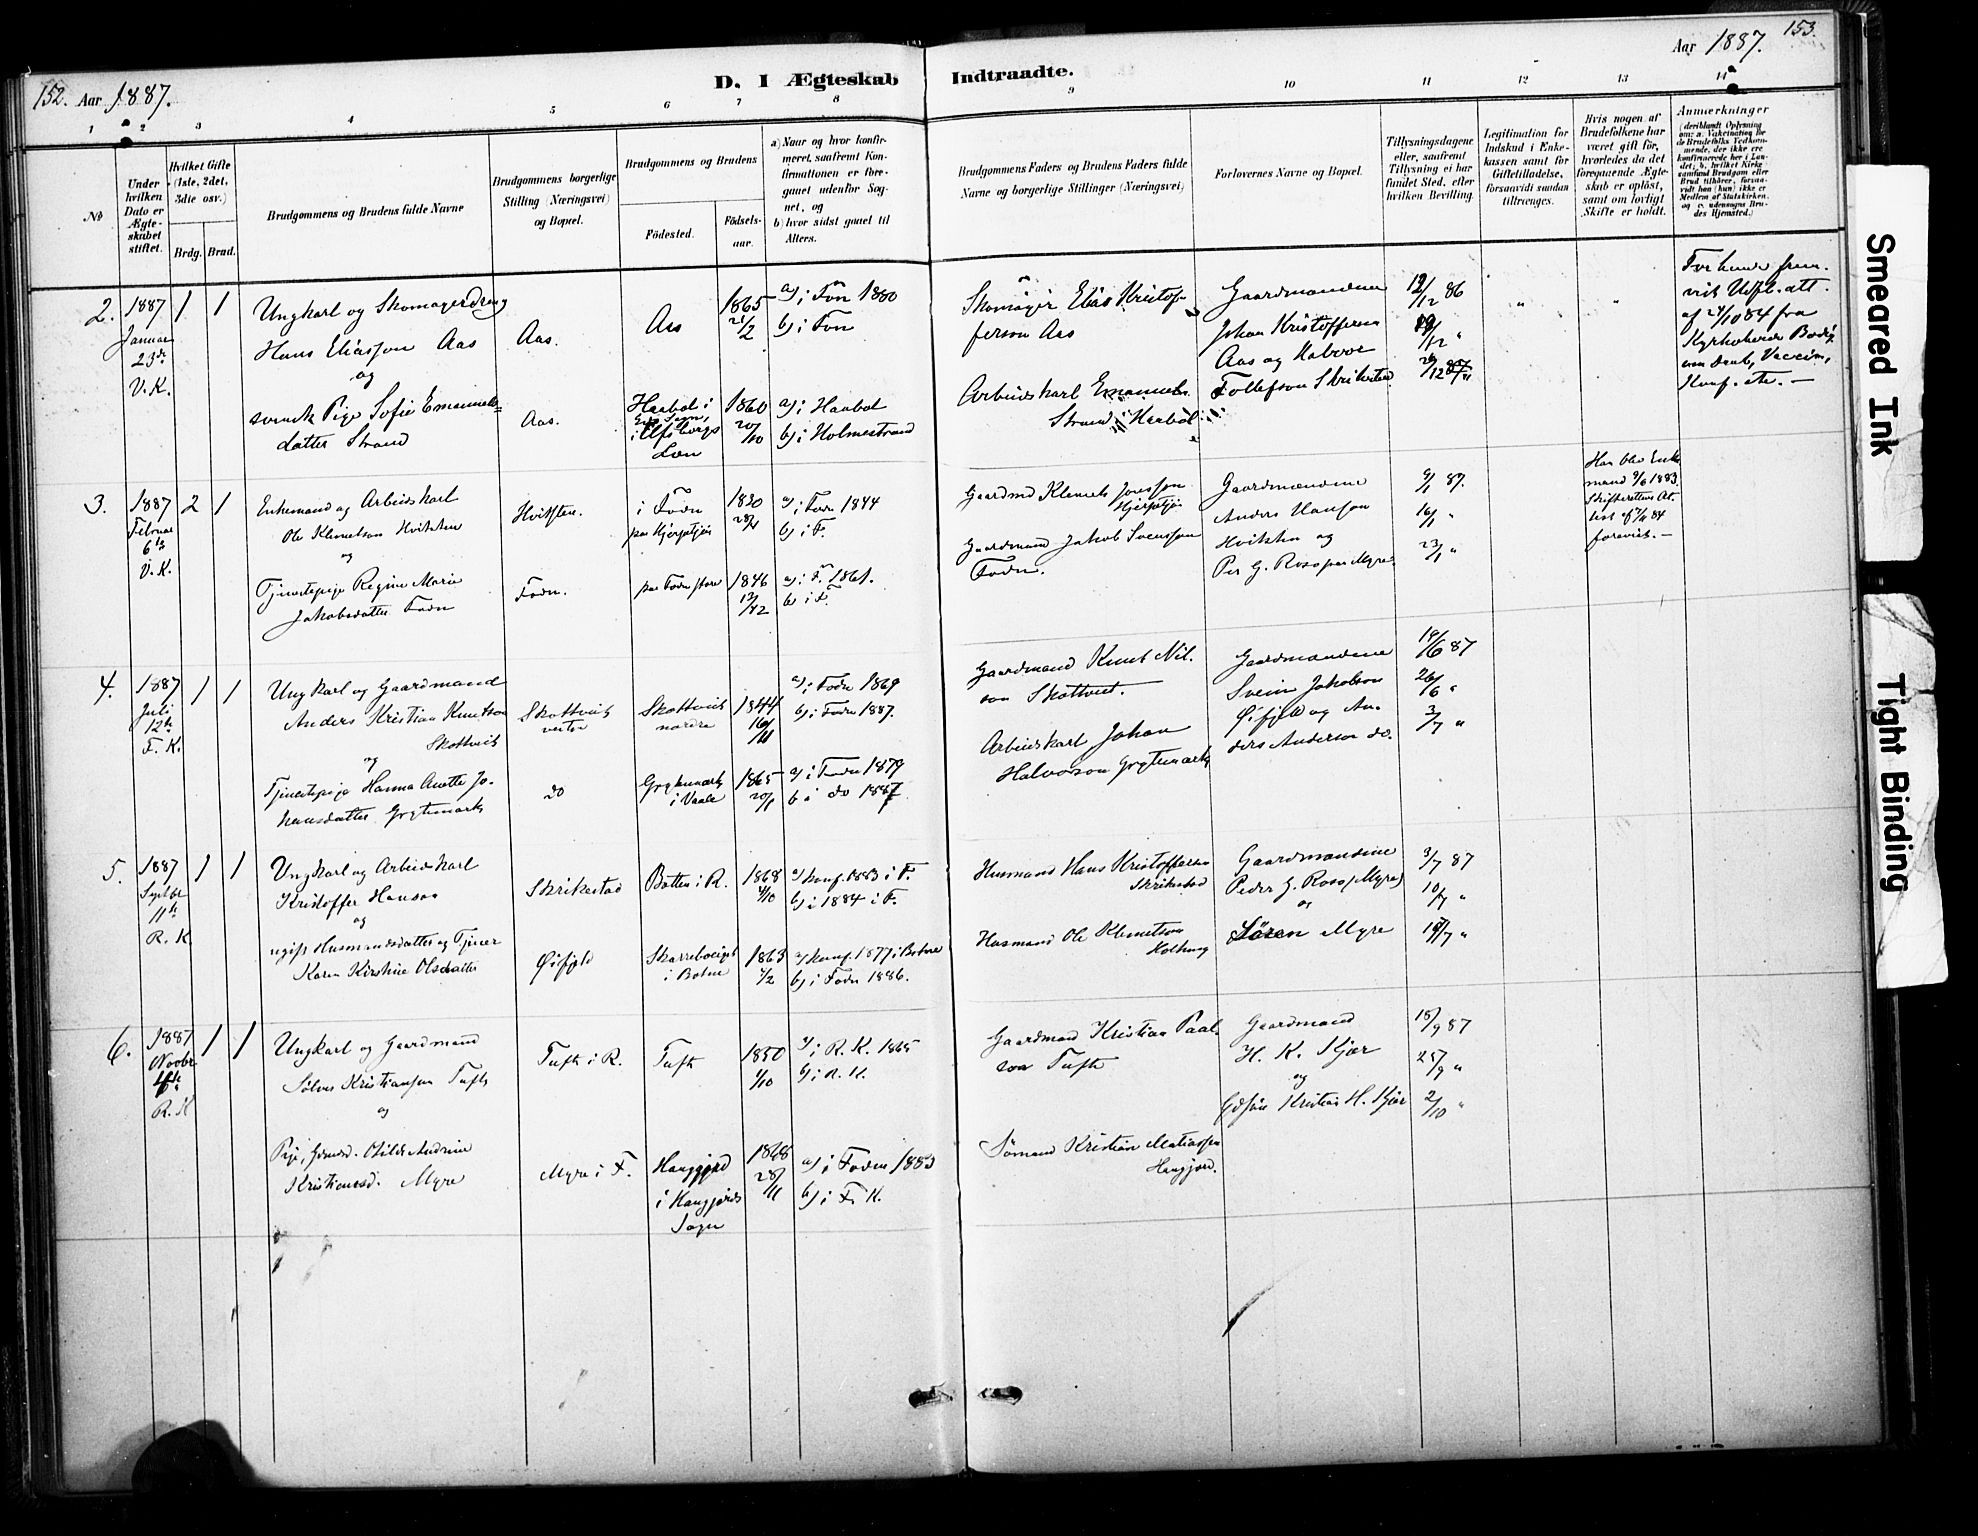 152. Aar 1887.
D. I Ægteskab Indtraadte.
Aar 1887. 153.
1 2 3 4 5 6 7 8 9 10 11 12 13 14
No
Under hvilken Dato er Ægteskabet stiftet.
Hvilket Gifte (1ste, 2det, 3die osv.)
Brdg. Brud.
Brudgommens og Brudens fulde Navne
Brudgommens borgerlige Stilling (Næringsvei) og Bopæl.
Brudgommens og Brudens
Födested.
Födselsaar.
a) Naar og hvor konfirmeret, saafremt Konfirmationen er foregaaet udenfor Sognet, og
b) hvor sidst gaaet til Alters.
Brudgommens Faders og Brudens Faders fulde Navne og borgerlige Stillinger (Næringsvei)
Forlovernes Navne og Bopæl.
Tillysningsdagene eller, saafremt Tillysning ei har fundet Sted, efter hvilken Bevilling.
Legitimation for Indskud i Enkekassen samt for Giftetilladelse, forsaavidt saadan tiltrænges.
Hvis nogen af Brudefolkene har været gift før, hvorledes da det foregaaende Ægteskab er opløst, samt om lovligt Skifte er holdt.
Anmærkninger
(deriblandt Oplysning om: a. Vakcination for de Brudefolks Vedkommende, der ikke ere konfirmerede her i Landet; b. hvilket Kirkesamfund Brudgom eller Brud tilhører, forsaavidt han (hun) ikke er Medlem af Statskirken, og c. udensogns Brudes Hjemsted.)
2.
1887
Januar
23de
V. K.
1 1
Ungkarl og Skomagerdreng
Hans Eliasson Aas
og
svensk Pige Sofie Emanuels-
datter Strand
Aas.
Aas.
Aas
Haabol i
i Elfsborgs
Län
1865
21/2
1860
20/10
a) i Fon 1880
b) i Fon
a) i Haabol
b) i Holmestrand
Skomager Elias Kristof-
ferson Aas
Arbeidskarl Emanuel
Strand i Haabol
Gaardmændene
Johan Kristofferson
Aas og Halvor
Tollefson Skrikestad
12/12 86
19/12 "
26/12 "
" "
af 24/10 84 fra
Kyrkoherde
3.
1887
Februar
6te
V. K.
2 1
Enkemand og Arbeidskarl
Ole Klemetson Hvitsten
og
Tjenestepige Regine Marie
Jakobsdatter Fodn
Hvitsten.
Fodn.
i Fodn
paa Kjerpetjön
paa Fodn store
1830
1846
13/12
a) i Fodn 1844
b) i F.
a) i F. 1861.
b) i F.
Gaardmd Klemet Jonsson
Kjerpetjön
Gaardmand Jakob Svensson
Fodn.
Gaardmændene
Anders Hanson
Hvitsten og
Per G. Ross paa Myre
9/1 87.
16/1 "
23/1 "
Han blev Enke-
mand 9/6 1883.
Skifterettens At-
test af 7/11 84
forevist. —
4.
1887
Juli
12te
F. K.
1 1
Ungkarl og Gaardmand
Anders Kristian Knutson
Skottvet
og
Tjenestepige Hanna Anette Jo-
hansdatter Grytemark
Skottvet
vestre
do
Skottvet
nordre
Grytemark
i Vaale
1844
16/11
1865
20/1
a) i Fodn 1869
b) i Fodn 1887.
a) i Fodn 1879
b i do 1887
Gaardmand Knut Nil-
son Skottvet.
Arbeidskarl Johan
Halvorson Grytemark
Gaardmændene
Svein Jakobson
Øifjeld og An-
ders Anderson do.
19/6 87
26/6 "
3/7 "
5.
1887
Septbr
11te
R. K.
1 1
Ungkarl og Arbeidskarl
Kristoffer Hanson
og
ugift Husmandsdatter og Tjener
Karen Kirstine Olsdatter
Skrikestad
Øifjeld
Botten i R.
i Botne
1868
4/10
1863
1/2
a) konf. 1883 i F.
b) i 1884 i F.
a) konf. 1877 i Botne
b) i Fodn 1886.
Husmand Hans Kristofferson
Skrikestad
Husmand Ole Klemetson
Gaardmændene
Peder G. Ross (Myre)
og
Søren Myre
3/7 87
10/7 "
17/7 "
6.
1887
Novbr
R. K
1 1
Ungkarl og Gaardmand
Sølver Kristiansen Tufte
og
Pige, Otilde Andrine
Kristiansd. Myre
Tufte i R.
Myre i F.
Tufte
Haugjord
i Haugjords
Sogn
1850
1/10
1868
28/11
a) i R. K. 1865
b) i R. K.
a) i Fodn 1883
b) i F. K.
Gaardmand Kristian Paal-
son Tufte
Sømand Kristian Matiassen
Haugjord.
Gaardmand
H. K. Kjær
og
Kristian H. Kjær
18/9 87
25/9 "
2/10 "
Smeared Ink
Tight Binding